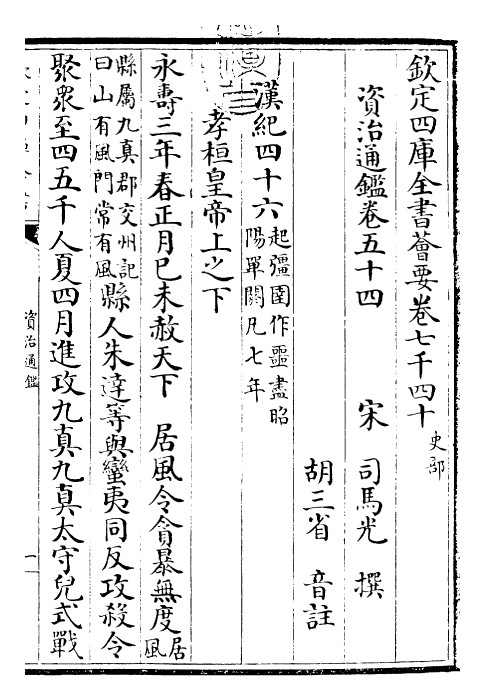 欽定四庫全書薈要卷七千四十
史部
資治通鑑卷五十四
宋 司馬光 撰
胡三省 音註
漢紀四十六
起彊圉作噩盡昭
陽單閼凡七年
孝桓皇帝上之下
永壽三年春正月己未赦天下 居風令貪暴無度
居風
縣屬九真郡交州記
曰山有風門常有風
縣人朱達等與蠻夷同反攻殺令
聚衆至四五千人夏四月進攻九真九真太守兒式戰
資治通鑑
一